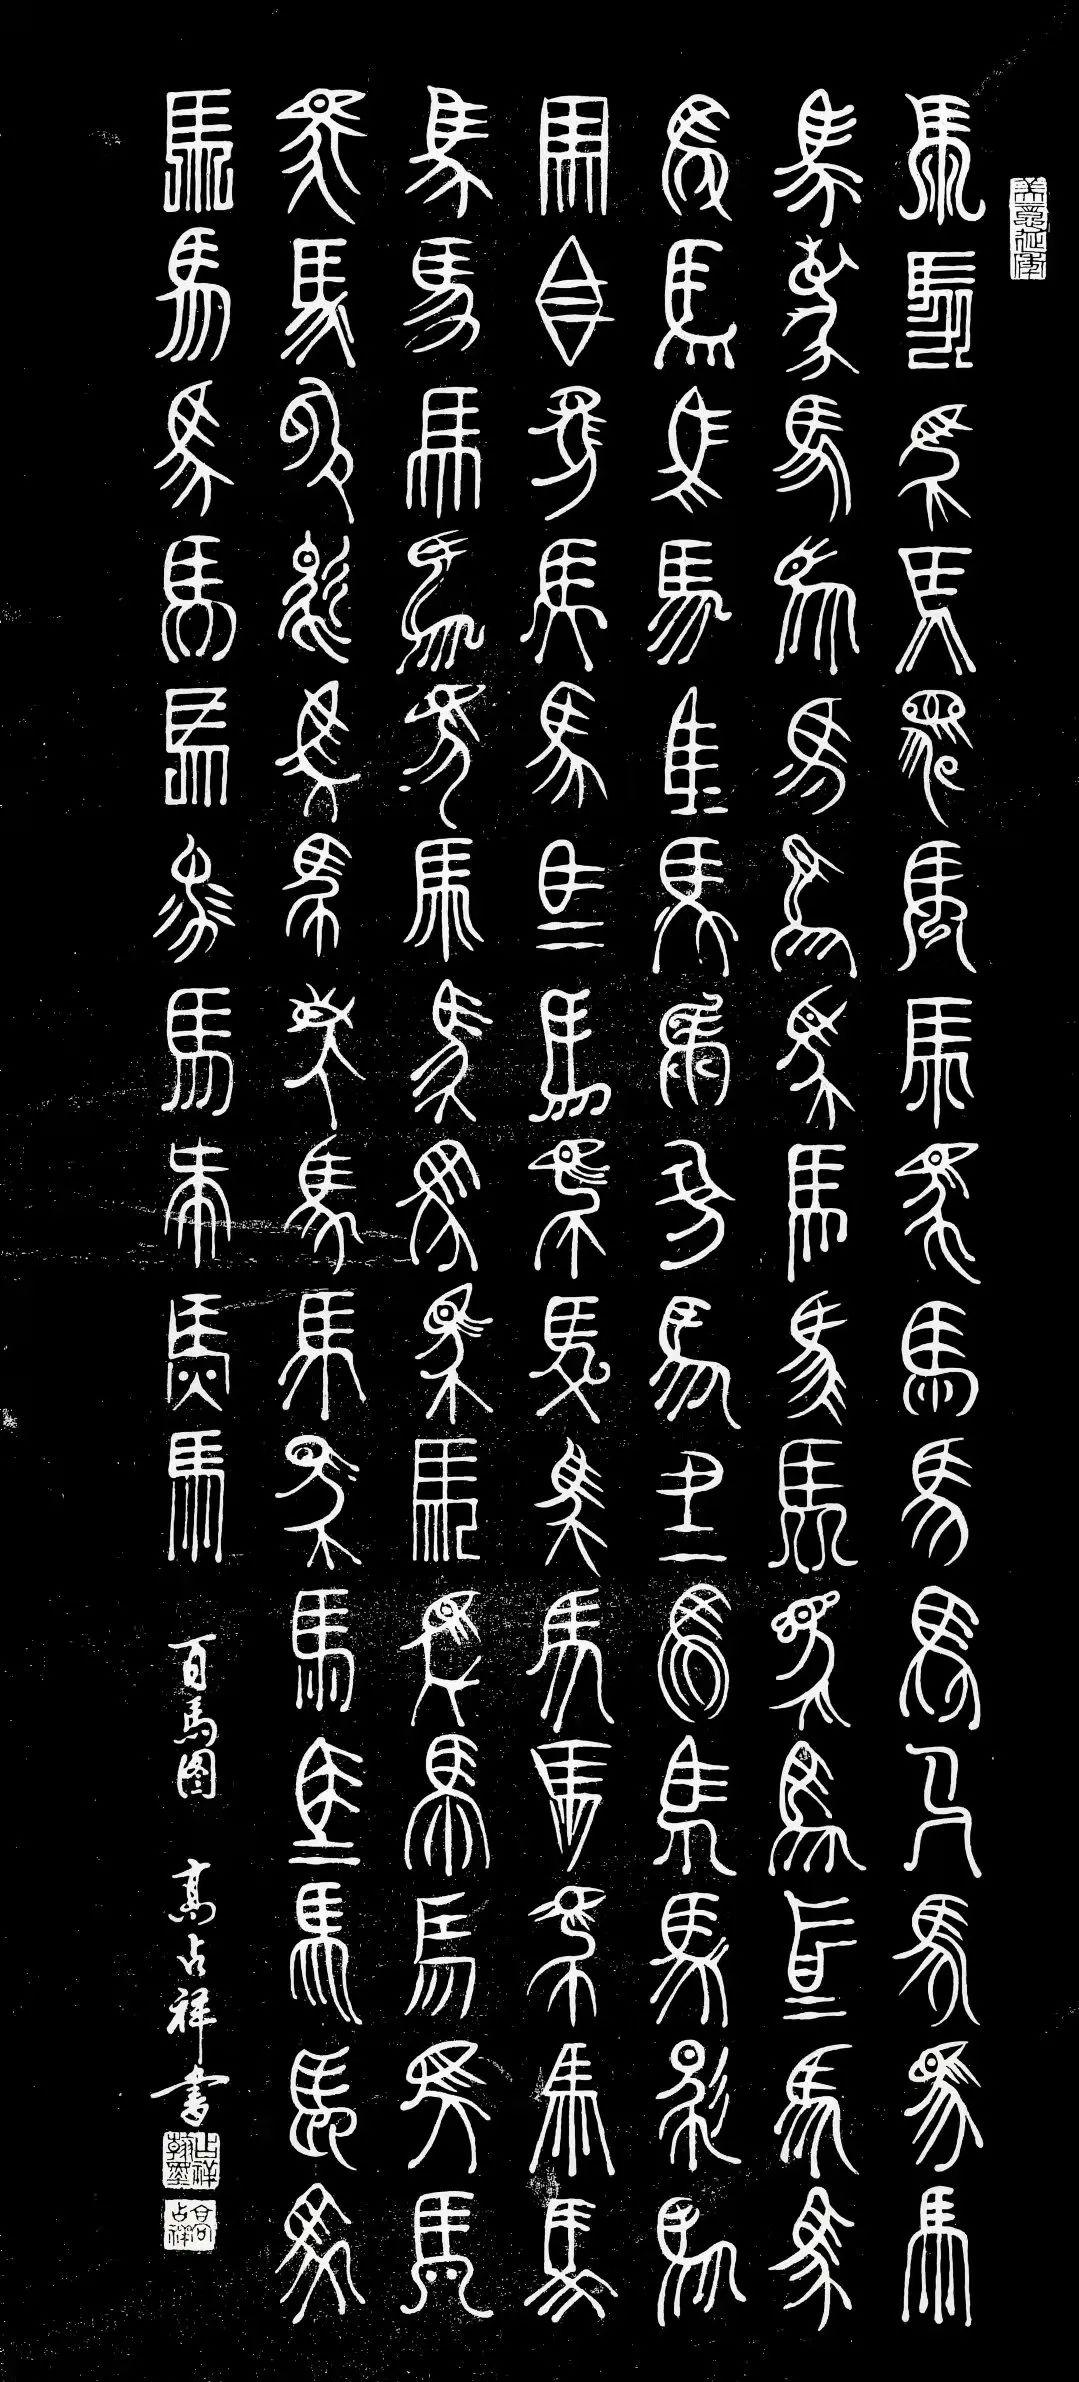 美意延年
馬馬馬馬馬馬馬馬馬馬馬馬馬馬馬
馬馬馬馬馬馬馬馬馬馬馬馬馬馬馬
馬馬馬馬馬馬馬馬馬馬馬馬馬馬馬
馬馬馬馬馬馬馬馬馬馬馬馬馬馬馬
馬馬馬馬馬馬馬馬馬馬馬馬馬馬馬
馬馬馬馬馬馬馬馬馬馬馬馬馬馬馬
馬馬馬馬馬馬馬馬馬馬 百馬图 高占祥書
占祥翰墨
高占祥